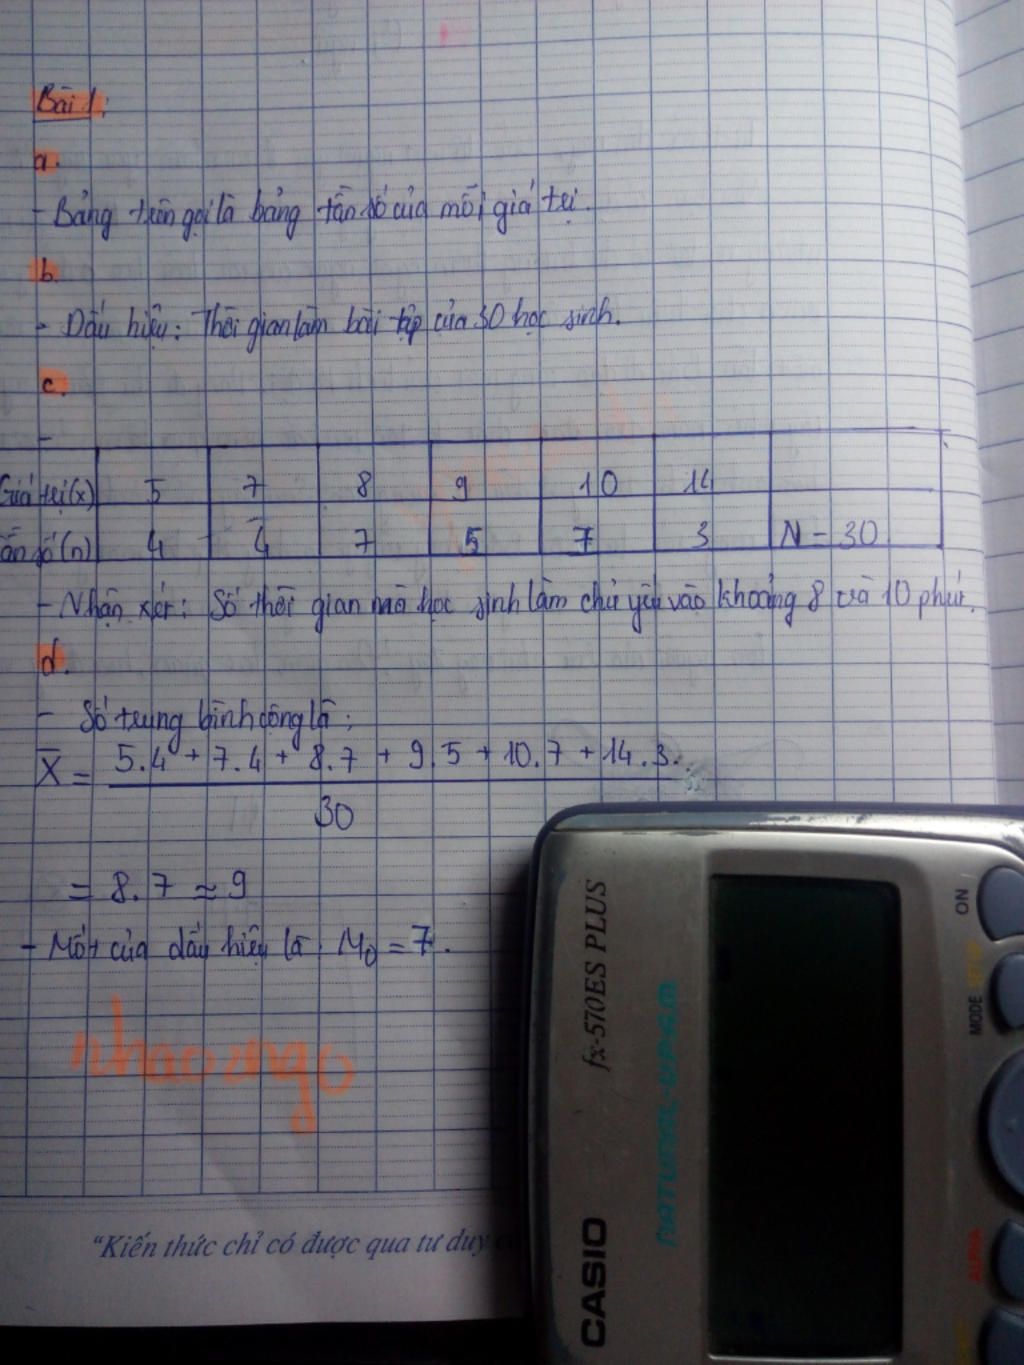 Bài 1:
a.
- Bảng trên gọi là bảng tần số của mỗi giá trị.
b.
- Dấu hiệu: Thời gian làm bài tập của 30 học sinh.
c.
-
Giá trị (x) 5 7 8 9 10 14
ần số (n) 4 4 7 5 7 3 N = 30
- Nhận xét: Số thời gian mà học sinh làm chủ yếu vào khoảng 8 và 10 phút.
d.
- Số trung bình cộng là:
X̄ = 5.4 + 7.4 + 8.7 + 9.5 + 10.7 + 14.3
30
= 8.7 ≈ 9
- Mốt của dấu hiệu là: M₀ = 7.
nhaovngo
"Kiến thức chỉ có được qua tư duy
CASIO
fx-570ES PLUS
NATURAL-V.P.A.M.
ON
MODE SETUP
ALPHA